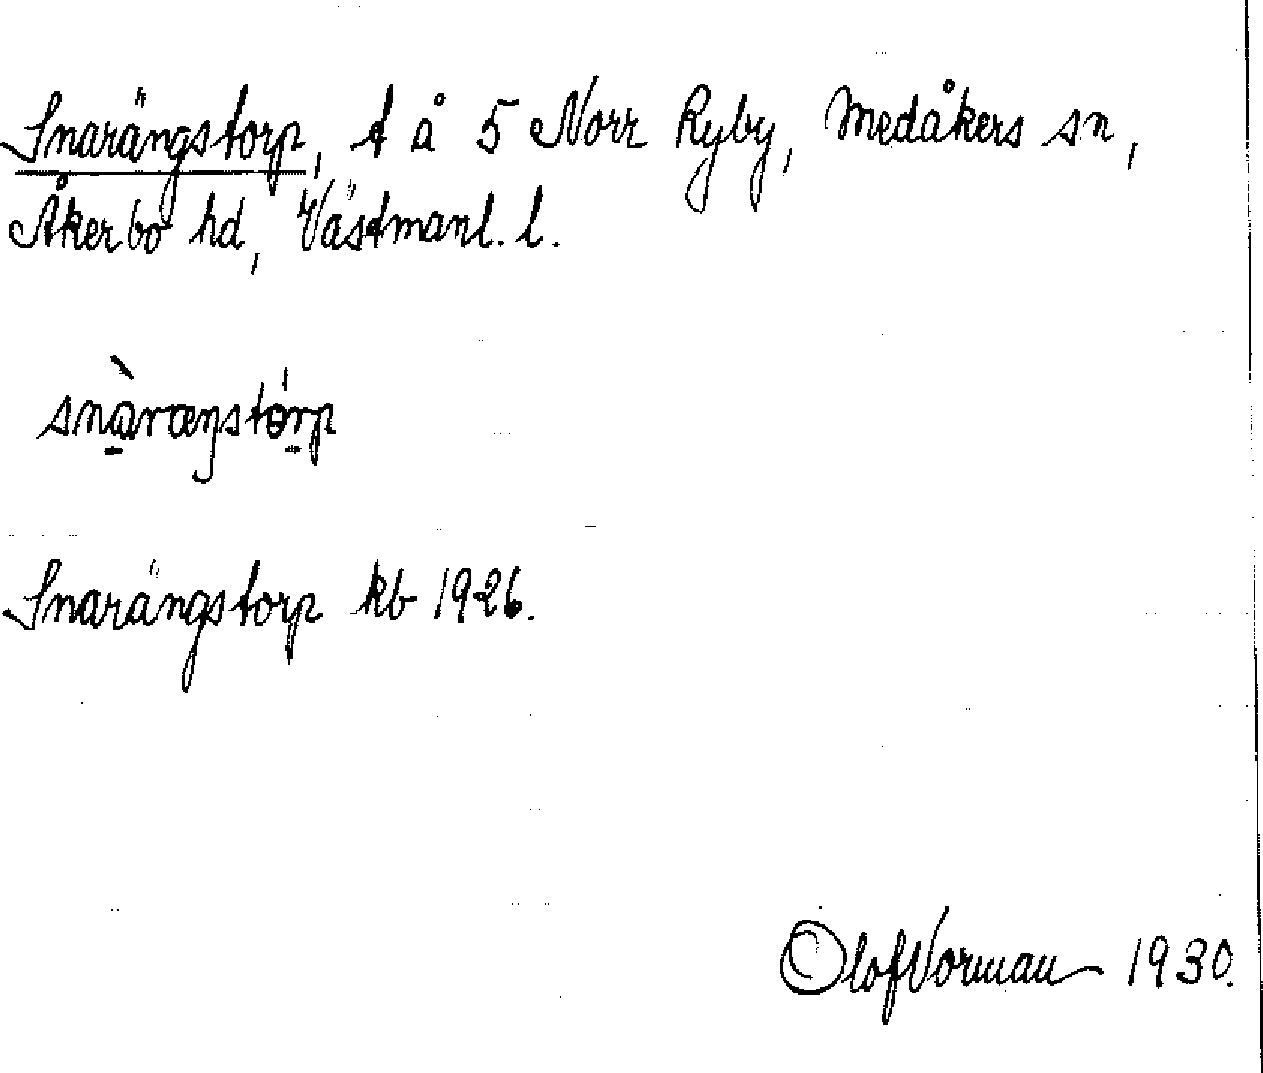 Snarängstorp, t å 5 Norr Ryby, Medåkers sn,
Åkerbo hd, Västmanl. l.
snà̱ræŋstó̱rp
Snarängstorp kb 1926.
Olof Norman 1930.